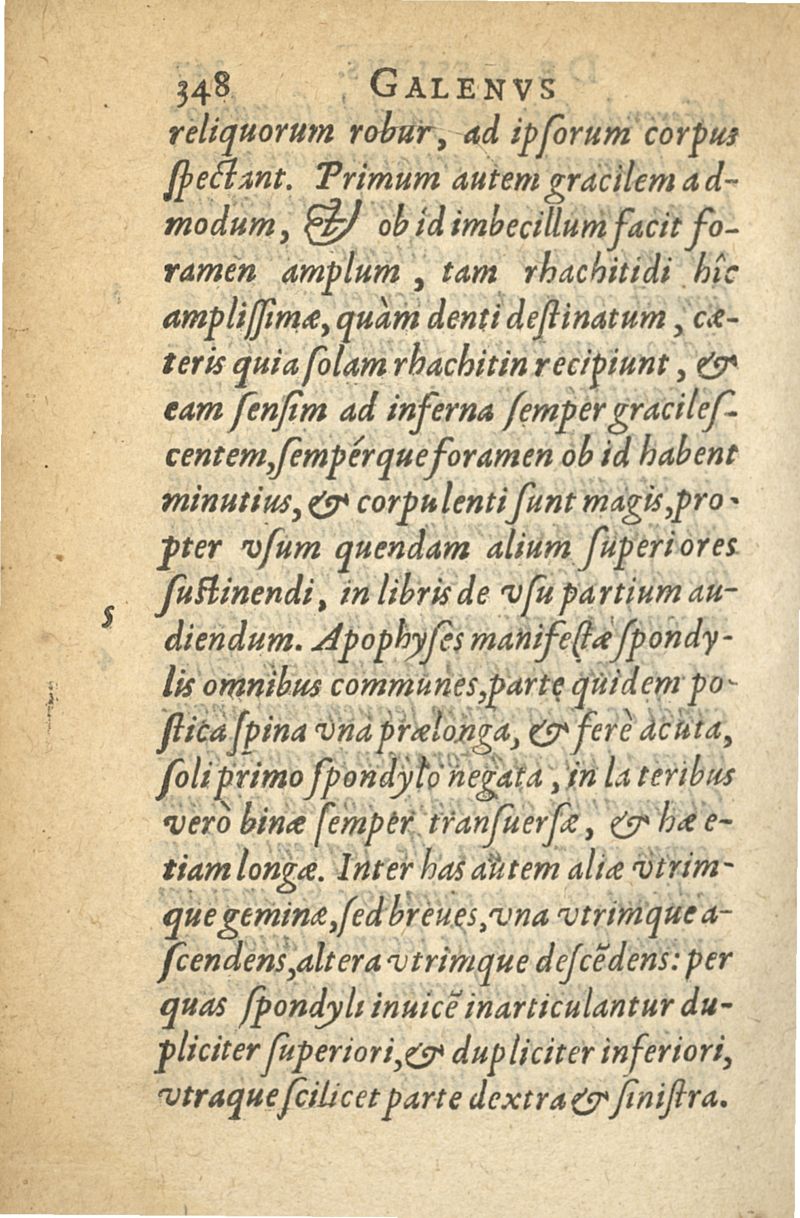 348 GALENVS
reliquorum robur, ad ipſorum corpus
ſpectant. Primum autem gracilem ad-
modum, & ob id imbecillum facit fo-
ramen amplum, tam rhachitidi hîc
ampliſſimæ, quàm denti deſtinatum, cæ-
teris quia ſolam rhachitin recipiunt, &
eam ſenſim ad inferna ſemper gracileſ-
centem, ſempérque foramen ob id habent
minutius, & corpulenti ſunt magis, pro-
pter vſum quendam alium ſuperiores
ſuſtinendi, in libris de vſu partium au-
5
diendum. Apophyſes manifeſtæ ſpondy-
lis omnibus communes, parte quidem po-
ſtica ſpina vna prælonga, & ferè acuta,
ſoli primo ſpondylo negata, in lateribus
verò binæ ſemper tranſuerſæ, & hæ e-
tiam longæ. Inter has autem aliæ vtrim-
que geminæ, ſed breues, vna vtrimque a-
ſcendens, altera vtrimque deſcẽdens: per
quas ſpondyli inuicẽ inarticulantur du-
pliciter ſuperiori, & dupliciter inferiori,
vtraque ſcilicet parte dextra & ſiniſtra.